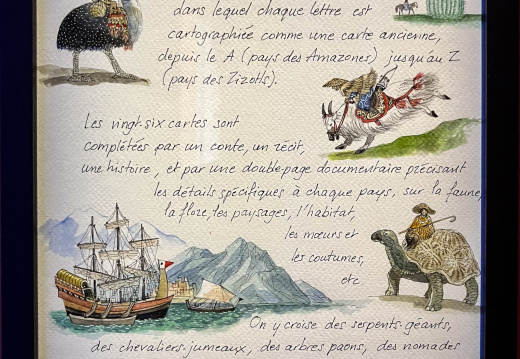 dans lequel chaque lettre est
cartographiée comme une carte ancienne,
depuis le A (pays des Amazones) jusqu'au Z
(pays des Zizotls).
Les vingt-six cartes sont
complétées par un conte, un récit,
une histoire, et par une double-page documentaire précisant
les détails spécifiques à chaque pays, sur la faune,
la flore, les paysages, l'habitat,
les mœurs et
les coutumes,
etc
On y croise des serpents-géants,
des chevaliers-jumeaux, des arbres paons, des nomades